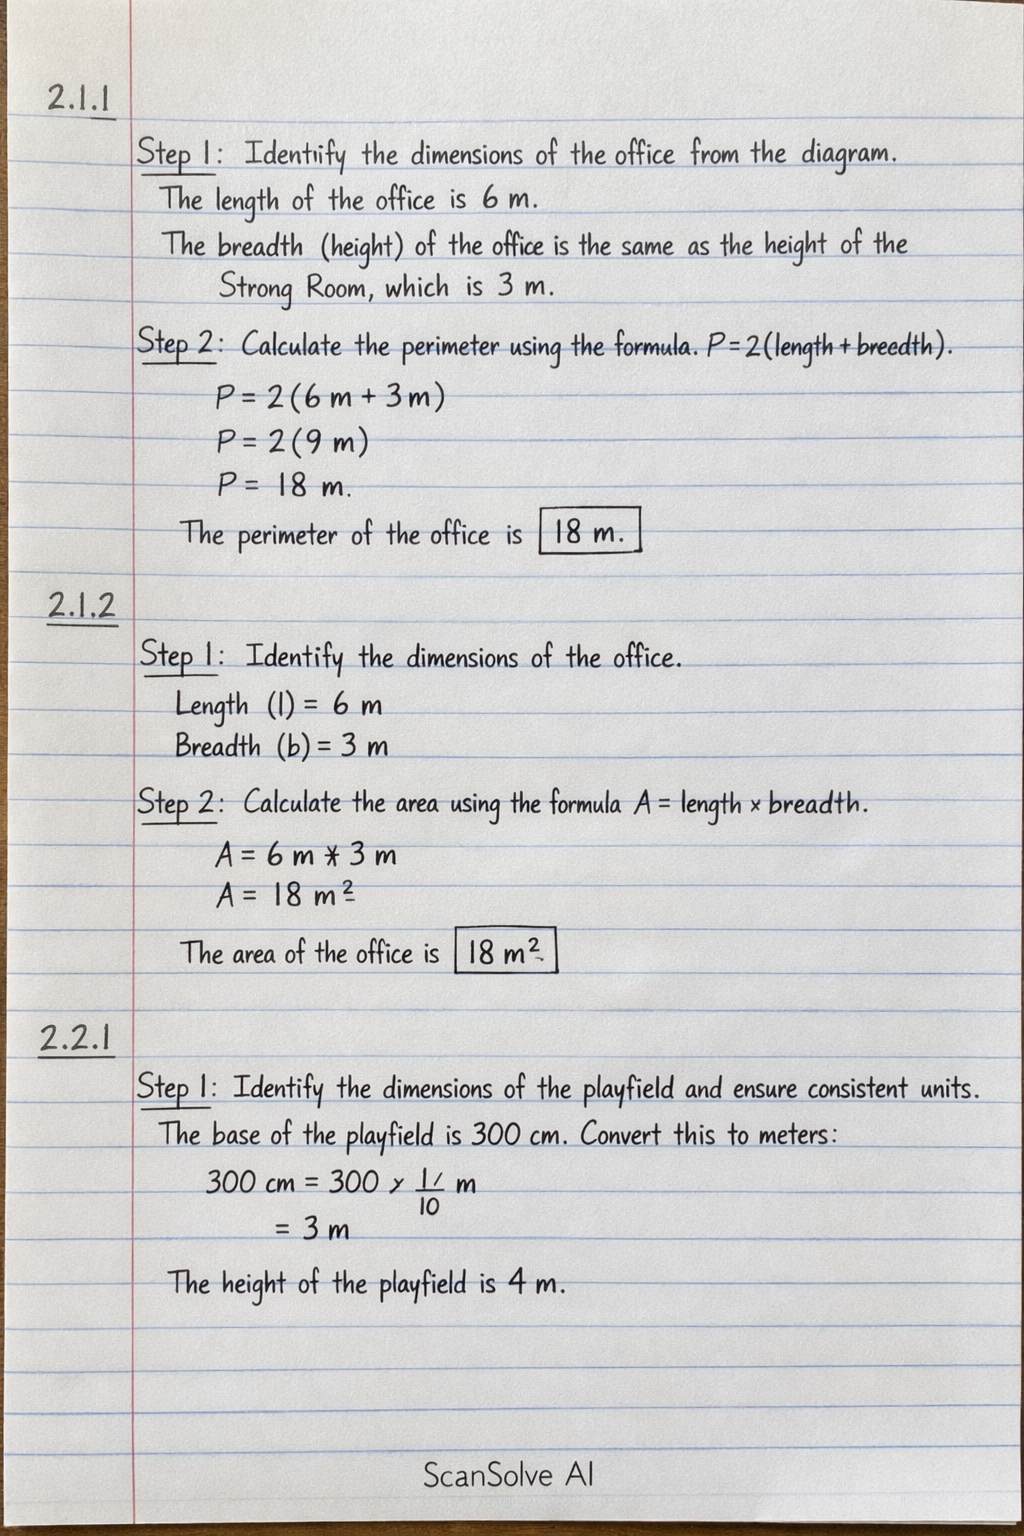 2.1.1
Step 1: Identiify the dimensions of the office from the diagram.
The length of the office is 6 m.
The breadth (height) of the office is the same as the height of the
Strong Room, which is 3 m.
Step 2: Calculate the perimeter using the formula. P = 2(length + breedth).
P = 2(6 m + 3 m)
P = 2(9 m)
P = 18 m.
The perimeter of the office is 18 m.
2.1.2
Step 1: Identify the dimensions of the office.
Length (l) = 6 m
Breadth (b) = 3 m
Step 2: Calculate the area using the formula A = length × breadth.
A = 6 m * 3 m
A = 18 m²
The area of the office is 18 m²
2.2.1
Step 1: Identify the dimensions of the playfield and ensure consistent units.
The base of the playfield is 300 cm. Convert this to meters:
300 cm = 300 × 1/10 m
= 3 m
The height of the playfield is 4 m.
ScanSolve AI